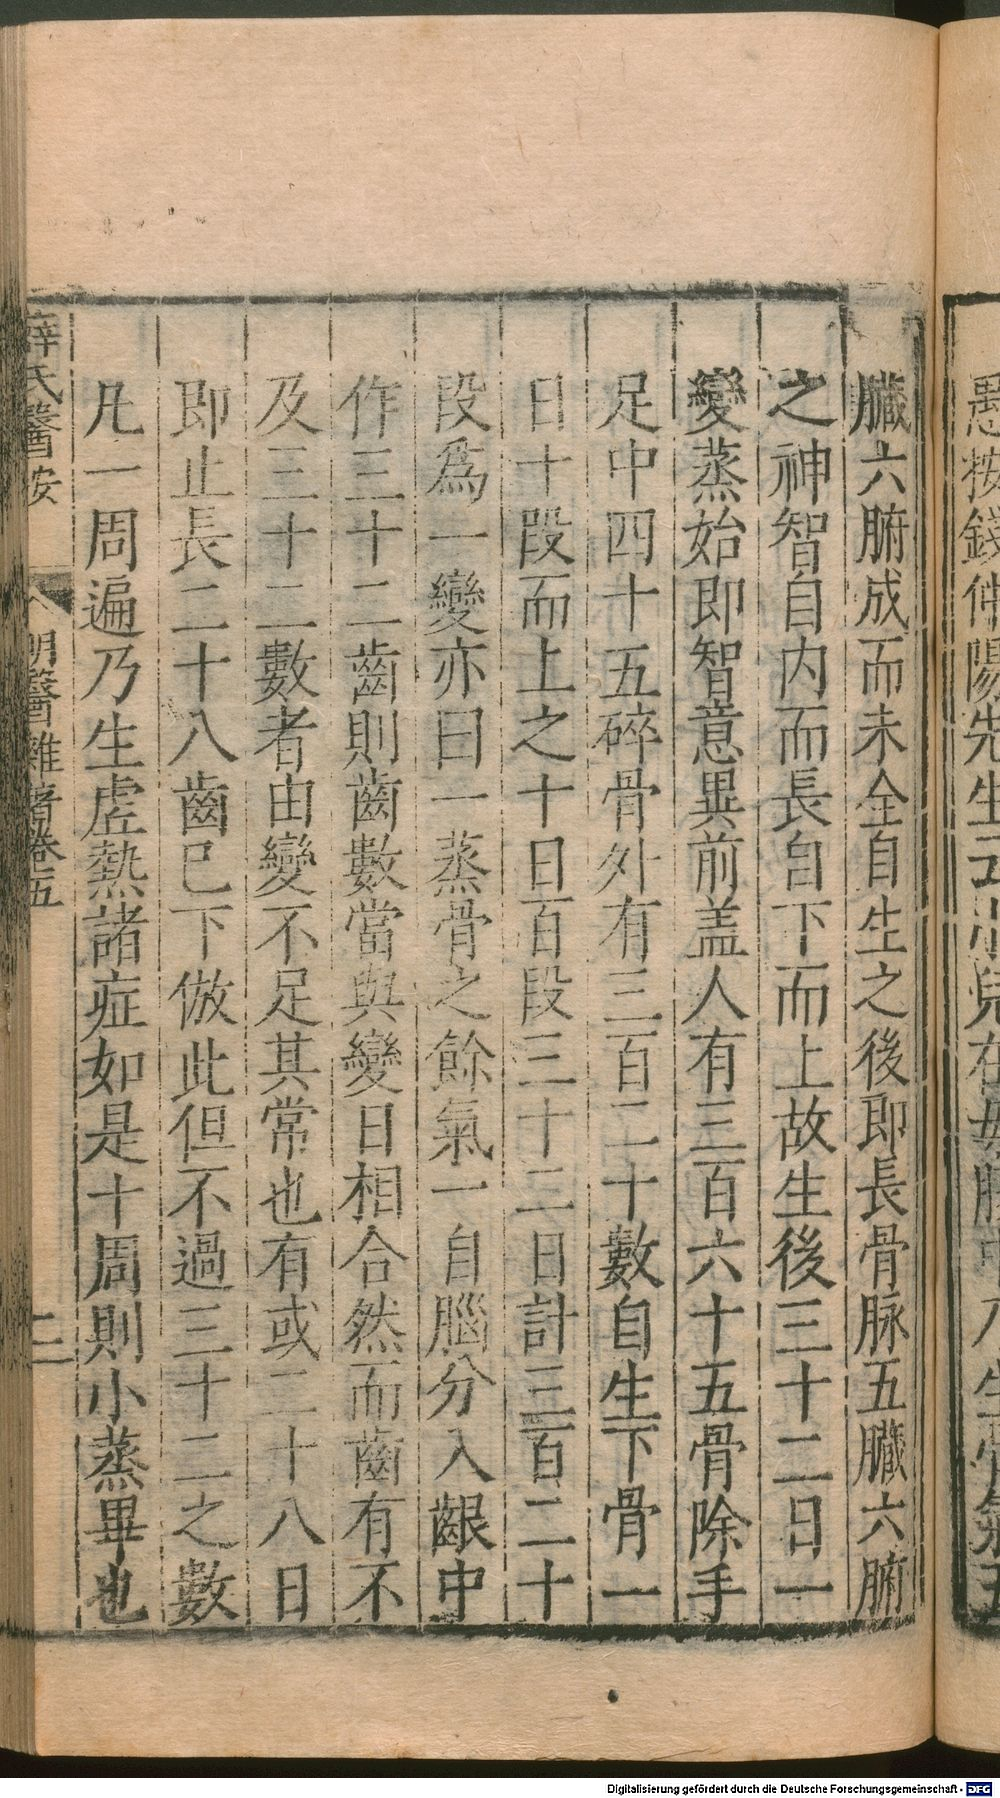 愚按錢仲陽先生云小兒在母腹中乃生骨氣五
臟六腑成而未全自生之後即長骨脉五臟六腑
之神智自内而長自下而上故生後三十二日一
變蒸始即智意異前盖人有三百六十五骨除手
足中四十五碎骨外有三百二十數自生下骨一
日十段而上之十日百段三十二日計三百二十
段爲一變亦曰一蒸骨之餘氣一自腦分入齦中
作三十二齒則齒數當與變日相合然而齒有不
及三十二數者由變不足其常也有或二十八日
即止長二十八齒已下倣此但不過三十二之數
凡一周遍乃生虛熱諸症如是十周則小蒸畢也
薛氏醫按 明醫雜著卷五 二
Digitalisierung gefördert durch die Deutsche Forschungsgemeinschaft - DFG